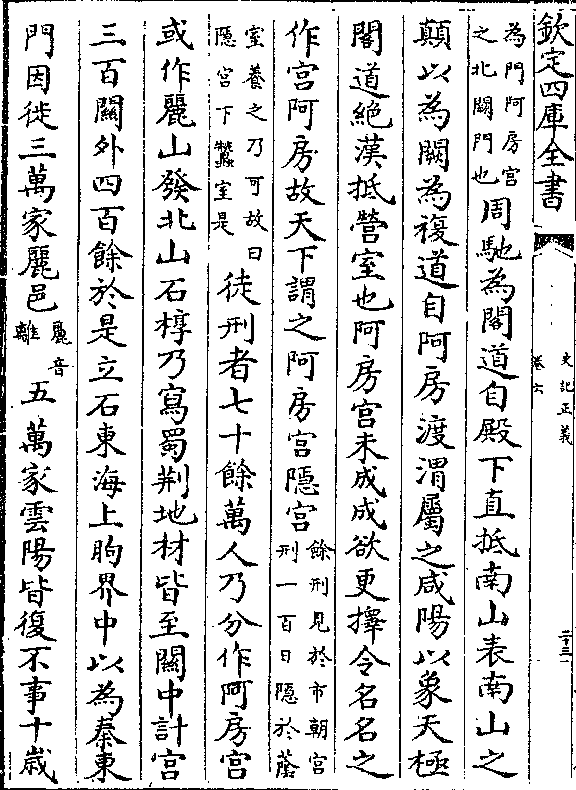 欽定四庫全書
史記正義
卷六
二十三
為門阿房宮之北闕門也周馳為閣道自殿下直抵南山表南山之
顛以為闕為複道自阿房渡渭屬之咸陽以象天極
閣道絕漢抵營室也阿房宮未成成欲更擇令名名之
作宮阿房故天下謂之阿房宮隱宮餘刑見於市朝宮刑一百日隱於蔭
室養之乃可故曰隱宮下蠶室是徒刑者七十餘萬人乃分作阿房宮
或作麗山發北山石椁乃寫蜀荆地材皆至關中計宮
三百關外四百餘於是立石東海上朐界中以為秦東
門因徙三萬家麗邑麗音離五萬家雲陽皆復不事十歲